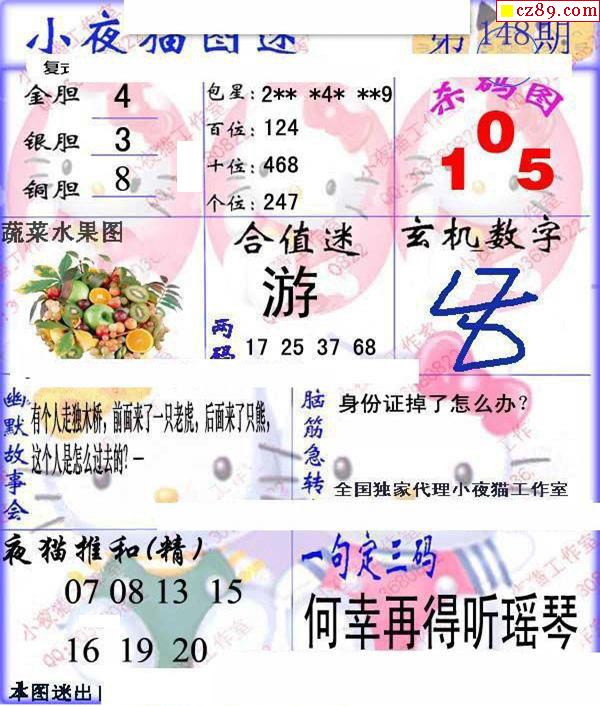 cz89.com
小夜猫图迷 第148期
金胆 4
银胆 3
铜胆 8
包星: 2** *4* **9
百位: 124
十位: 468
个位: 247
杀码图
1 0 5
蔬菜水果图
合值迷
游
两码
17 25 37 68
玄机数字
幽默故事会
有个人走独木桥，前面来了一只老虎，后面来了只熊，
这个人是怎么过去的？一
脑筋急转
身份证掉了怎么办？
全国独家代理小夜猫工作室
夜猫推和(精)
07 08 13 15
16 19 20
一句定三码
何幸再得听瑶琴
本图迷出